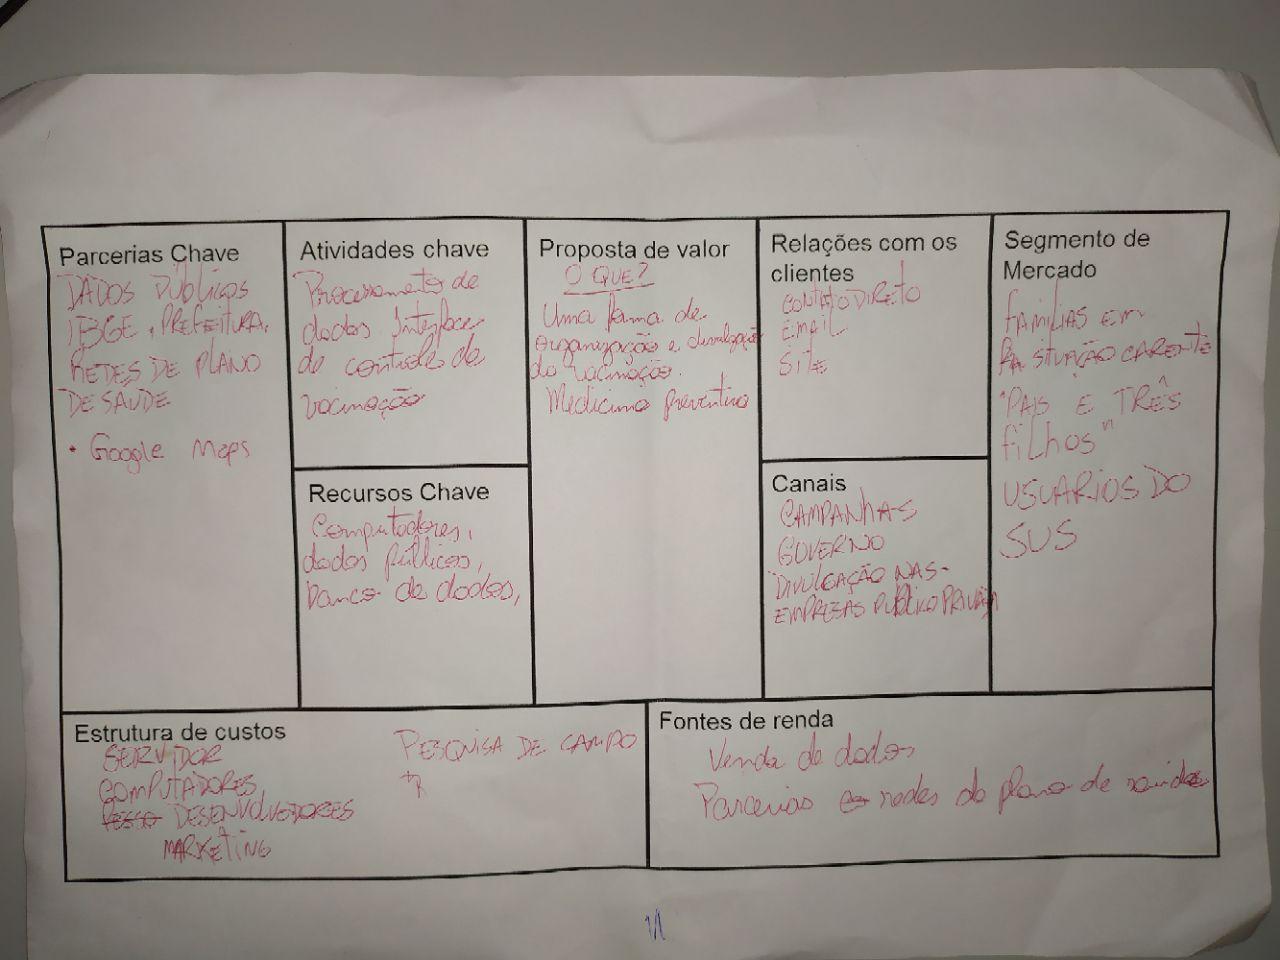 Parcerias Chave
DADOS PÚBLICOS
IBGE, PREFEITURA,
REDES DE PLANO
DE SAÚDE
• Google Maps
Atividades chave
Processamento de
dados Interface
de controle de
vacinação
Recursos Chave
Computadores,
dados públicos,
banco de dados,
Proposta de valor
O QUE?
Uma forma de
organização e divulgação
da vacinação.
Medicina preventiva
Relações com os
clientes
CONTATO DIRETO
EMAIL
SITE
Canais
CAMPANHAS
GOVERNO
DIVULGAÇÃO NAS
EMPRESAS PUBLICO PRIVADA
Segmento de
Mercado
FAMÍLIAS EM
SITUAÇÃO CARENTE
"PAIS E TRÊS
filhos"
USUARIOS DO
SUS
Estrutura de custos
SERVIDOR
COMPUTADORES
DESENVOLVEDORES
MARKETING
PESQUISA DE CAMPO
Fontes de renda
Venda de dados
Parcerias redes de plano de saúde